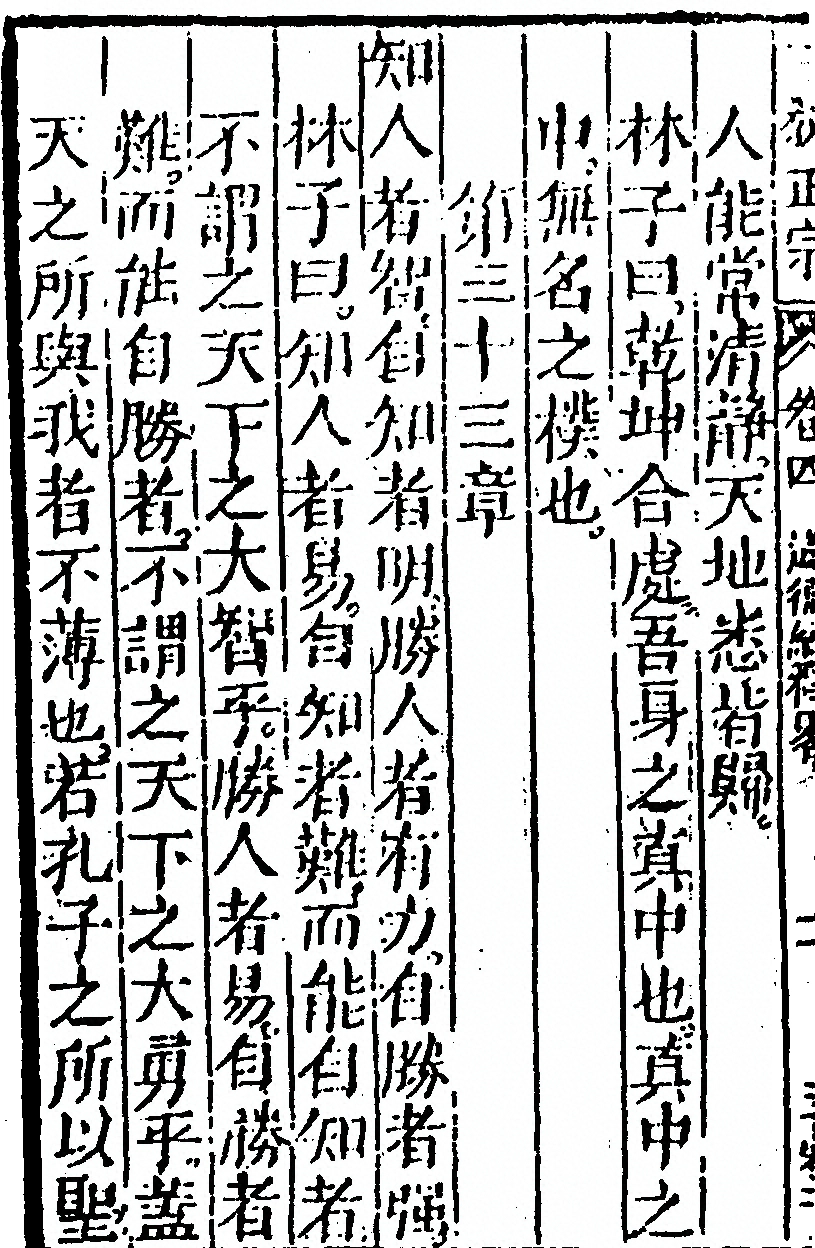 正宗 卷四 道德經釋畧
人能常清靜。天地悉皆歸。
林子曰。乾坤合處。吾身之真中也。真中之
中。無名之樸也。
第三十三章
知人者智。自知者明。勝人者有力。自勝者強。
林子曰。知人者易。自知者難。而能自知者。
不謂之天下之大智乎。勝人者易。自勝者
難。而能自勝者。不謂之天下之大勇乎。蓋
天之所與我者不薄也。若孔子之所以聖。